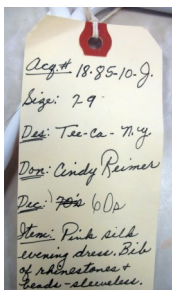 Acq.# 18-85-10-J.
Size: 29"
Des: Tee-Ca-N.Y
Don: Cindy Reimer
Dec: 70's 60s
Item: Pink silk
evening dress. Bib
of rhinestones +
beads-sleeveless.